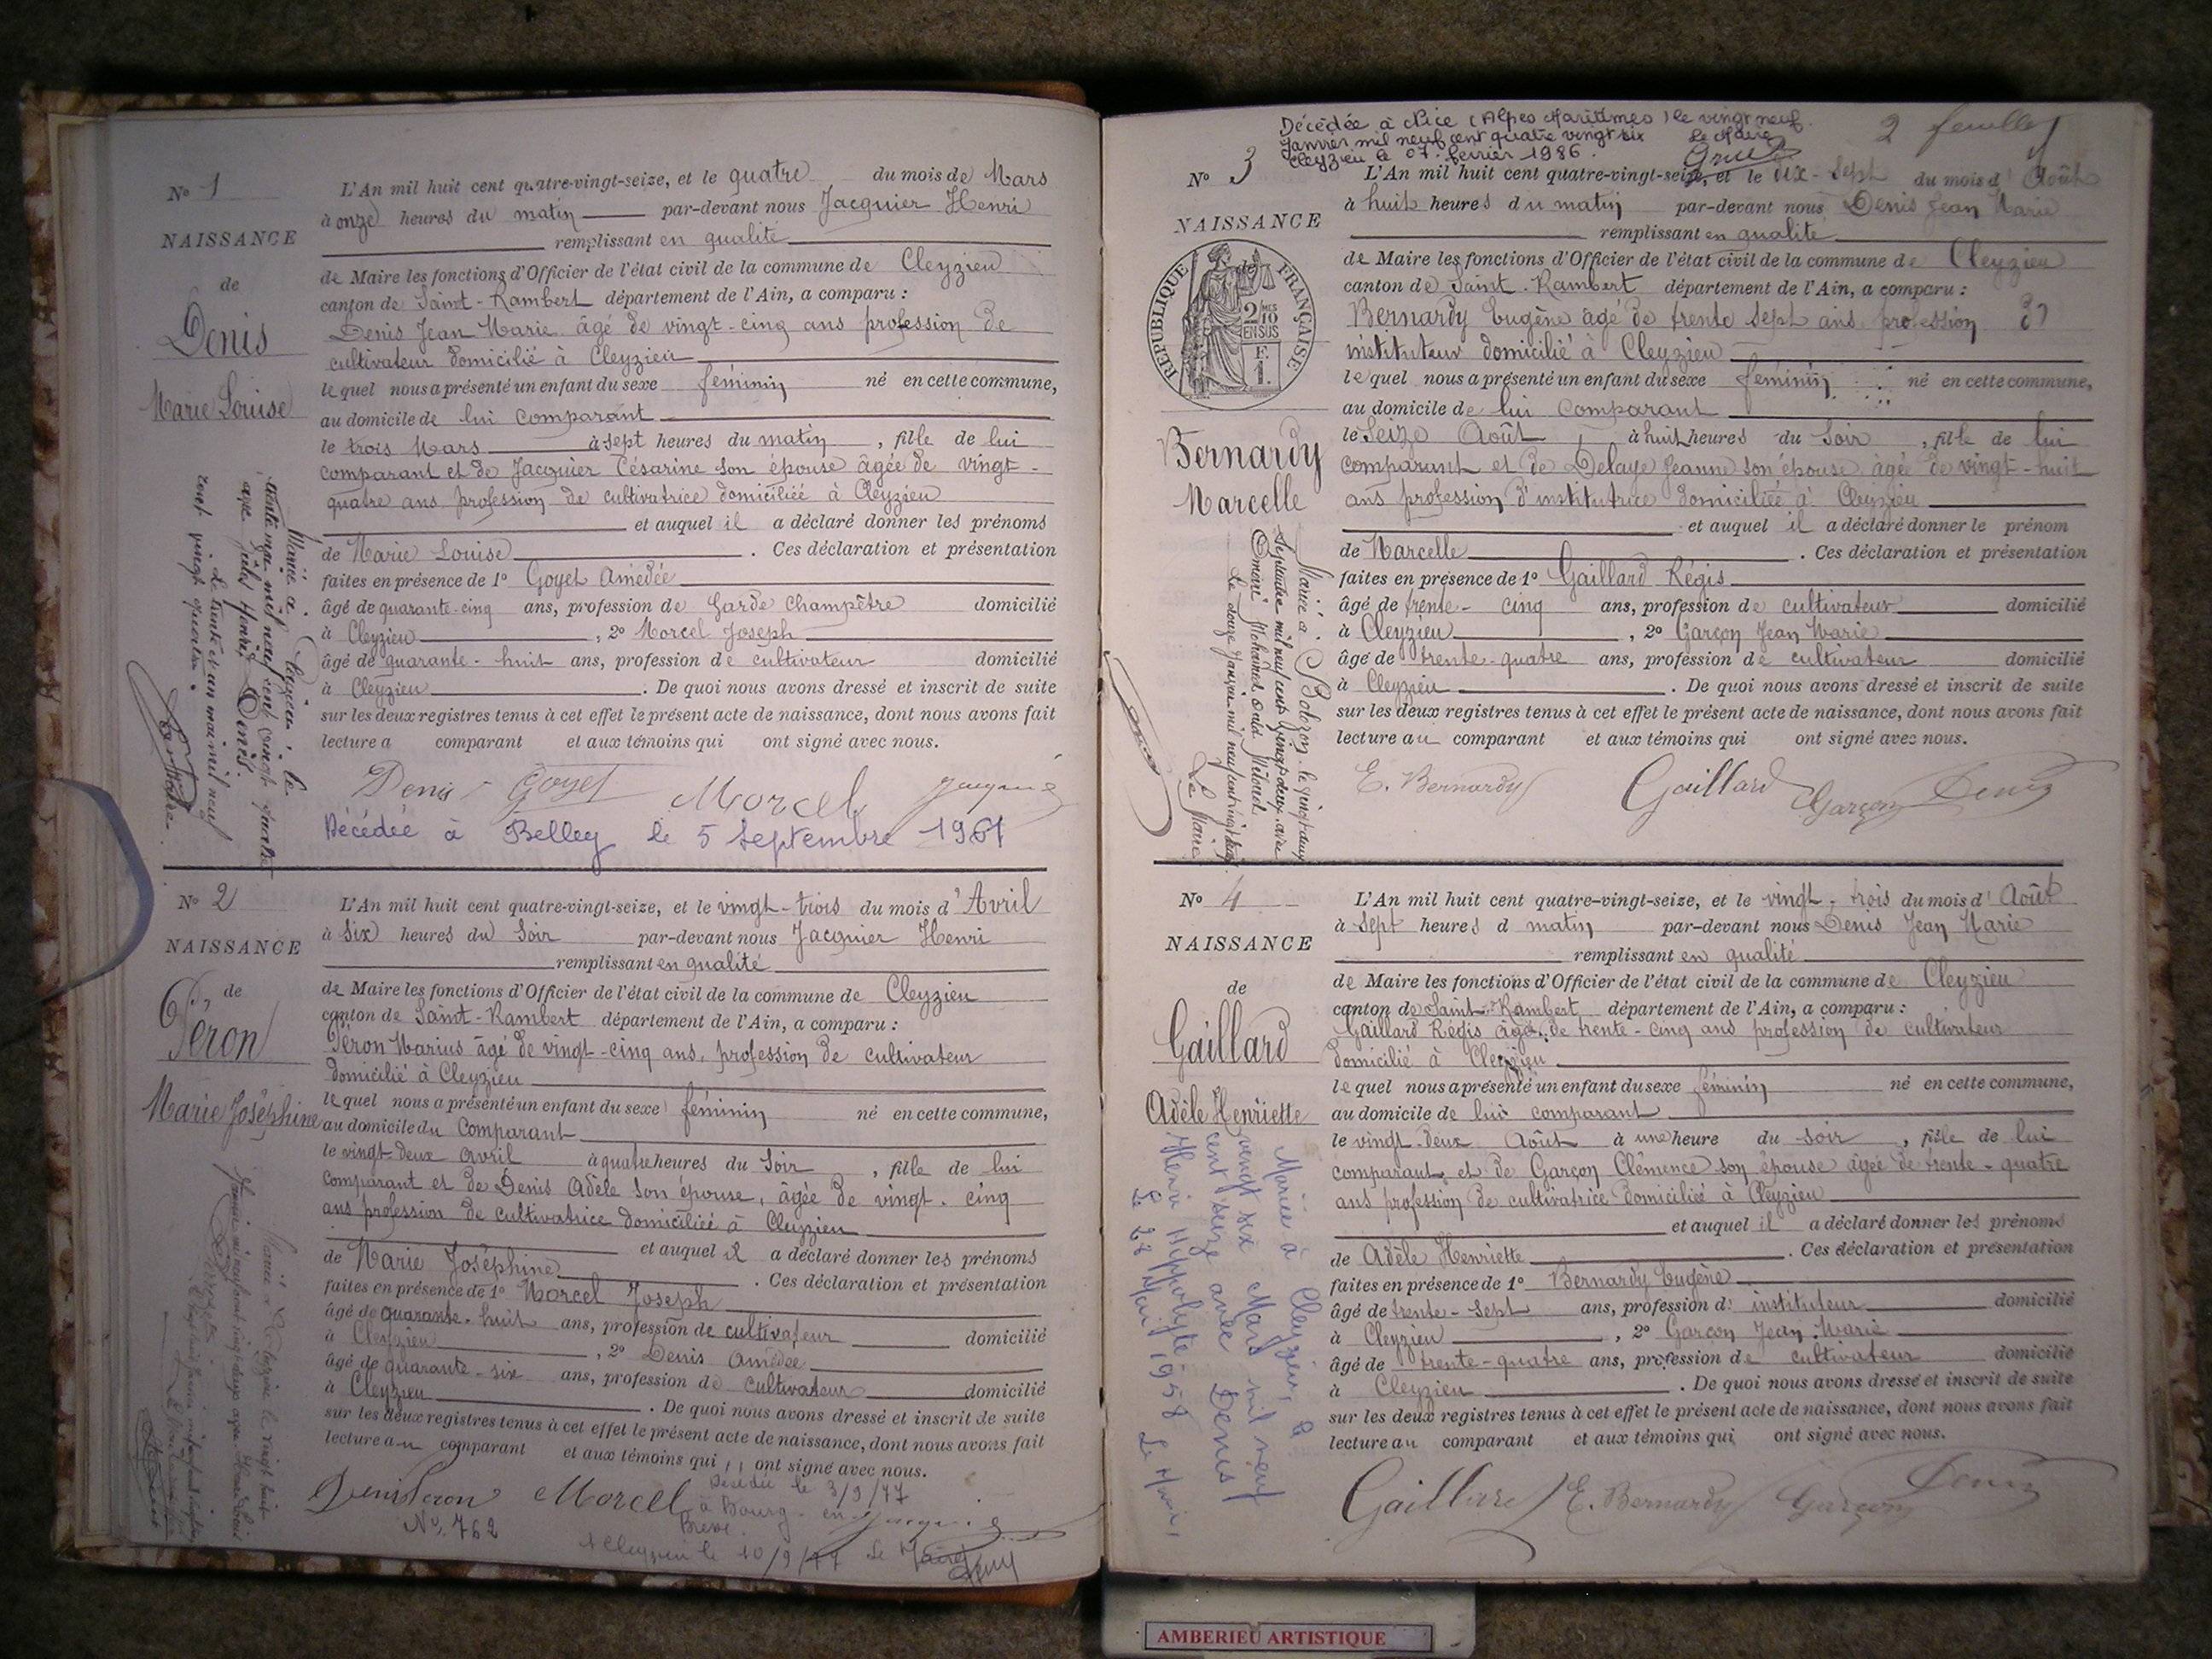 No 1
NAISSANCE
de
Denis
Marie Louise
L'An mil huit cent quatre-vingt-seize, et le quatre du mois de Mars
à onze heures du matin par-devant nous Jacquier Henri
remplissant en qualité
de Maire les fonctions d'Officier de l'état civil de la commune de Cleyzieu
canton de Saint-Rambert département de l'Ain, a comparu :
Denis Jean Marie âgé de vingt-cinq ans profession de
cultivateur domicilié à Cleyzieu
lequel nous a présenté un enfant du sexe féminin né en cette commune,
au domicile de lui comparant
le trois Mars à sept heures du matin, fille de lui
comparant et de Jacquier Césarine son épouse âgée de vingt-
quatre ans profession de cultivatrice domiciliée à Cleyzieu
et auquel il a déclaré donner les prénoms
de Marie Louise. Ces déclaration et présentation
faites en présence de 1o Goyet Amédée
âgé de quarante-cinq ans, profession de Garde Champêtre domicilié
à Cleyzieu, 2o Morcel Joseph
âgé de quarante-huit ans, profession de cultivateur domicilié
à Cleyzieu. De quoi nous avons dressé et inscrit de suite
sur les deux registres tenus à cet effet le présent acte de naissance, dont nous avons fait
lecture a comparant et aux témoins qui ont signé avec nous.
Denis Goyet Morcel Jacquier
Décédée à Belley le 5 Septembre 1961
Mariée à Cleyzieu le
trente mai mil neuf cent vingt quatre
avec Jules Henri Denis
Le trente et un mai mil neuf
cent vingt quatre.
No 2
NAISSANCE
de
Péron
Marie Joséphine
L'An mil huit cent quatre-vingt-seize, et le vingt-trois du mois d'Avril
à six heures du soir par-devant nous Jacquier Henri
remplissant en qualité
de Maire les fonctions d'Officier de l'état civil de la commune de Cleyzieu
canton de Saint-Rambert département de l'Ain, a comparu :
Péron Marius âgé de vingt-cinq ans, profession de cultivateur
domicilié à Cleyzieu
lequel nous a présenté un enfant du sexe féminin né en cette commune,
au domicile du comparant
le vingt-deux avril à quatre heures du soir, fille de lui
comparant et de Denis Adèle son épouse, âgée de vingt-cinq
ans profession de cultivatrice domiciliée à Cleyzieu
et auquel il a déclaré donner les prénoms
de Marie Joséphine. Ces déclaration et présentation
faites en présence de 1o Morcel Joseph
âgé de quarante-huit ans, profession de cultivateur domicilié
à Cleyzieu, 2o Denis Amédée
âgé de quarante-six ans, profession de cultivateur domicilié
à Cleyzieu. De quoi nous avons dressé et inscrit de suite
sur les deux registres tenus à cet effet le présent acte de naissance, dont nous avons fait
lecture au comparant et aux témoins qui ont signé avec nous.
Denis Peron Morcel
Décédée le 3/9/77
à Bourg-en-
Bresse
No 762
A Cleyzieu le 10/9/77 Le Maire
2 feuillet
Décédée à Nice (Alpes Maritimes) le vingt neuf
Janvier mil neuf cent quatre vingt six Le Maire
Cleyzieu le 07 fevrier 1986.
No 3
NAISSANCE
de
REPUBLIQUE FRANÇAISE
2/10MES
EN SUS
F.
1.
Bernardy
Marcelle
L'An mil huit cent quatre-vingt-seize, et le dix-sept du mois d'Août
à huit heures du matin par-devant nous Denis Jean Marie
remplissant en qualité
de Maire les fonctions d'Officier de l'état civil de la commune de Cleyzieu
canton de Saint-Rambert département de l'Ain, a comparu :
Bernardy Eugène âgé de trente sept ans profession d'
instituteur domicilié à Cleyzieu
lequel nous a présenté un enfant du sexe féminin né en cette commune,
au domicile de lui comparant
le Seize Août à huit heures du Soir, fille de lui
comparant et de Delaye Jeanne son épouse âgé de vingt-huit
ans profession d'institutrice domiciliée à Cleyzieu
et auquel il a déclaré donner le prénom
de Marcelle. Ces déclaration et présentation
faites en présence de 1o Gaillard Régis
âgé de trente-cinq ans, profession de cultivateur domicilié
à Cleyzieu, 2o Garçon Jean Marie
âgé de trente-quatre ans, profession de cultivateur domicilié
à Cleyzieu. De quoi nous avons dressé et inscrit de suite
sur les deux registres tenus à cet effet le présent acte de naissance, dont nous avons fait
lecture au comparant et aux témoins qui ont signé avec nous.
E. Bernardy Gaillard Garçon Denis
Mariée à Bolozon le vingt deux
Septembre mil neuf cent vingt deux avec
Omari Mohamed
Le Maire
No 4
NAISSANCE
de
Gaillard
Adèle Henriette
L'An mil huit cent quatre-vingt-seize, et le vingt-trois du mois d'Août
à sept heures d matin par-devant nous Denis Jean Marie
remplissant en qualité
de Maire les fonctions d'Officier de l'état civil de la commune de Cleyzieu
canton de Saint-Rambert département de l'Ain, a comparu :
Gaillard Régis âgé de trente-cinq ans profession de cultivateur
domicilié à Cleyzieu
lequel nous a présenté un enfant du sexe féminin né en cette commune,
au domicile de lui comparant
le vingt-deux Août à une heure du soir, fille de lui
comparant et de Garçon Clémence son épouse âgée de trente-quatre
ans profession de cultivatrice domiciliée à Cleyzieu
et auquel il a déclaré donner les prénoms
de Adèle Henriette. Ces déclaration et présentation
faites en présence de 1o Bernardy Eugène
âgé de trente-sept ans, profession d'instituteur domicilié
à Cleyzieu, 2o Garçon Jean Marie
âgé de trente-quatre ans, profession de cultivateur domicilié
à Cleyzieu. De quoi nous avons dressé et inscrit de suite
sur les deux registres tenus à cet effet le présent acte de naissance, dont nous avons fait
lecture au comparant et aux témoins qui ont signé avec nous.
Gaillard E. Bernardy Garçon Denis
Mariée à Cleyzieu, le
vingt six Mars mil neuf
cent seize avec Denis
Henri Hippolyte.
Le 28 Mai 1958 Le Maire,
AMBERIEU ARTISTIQUE